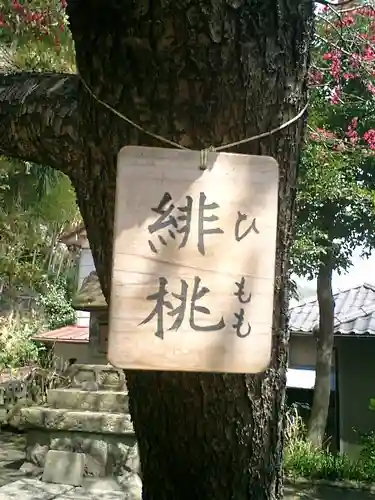 緋桃
ひもも